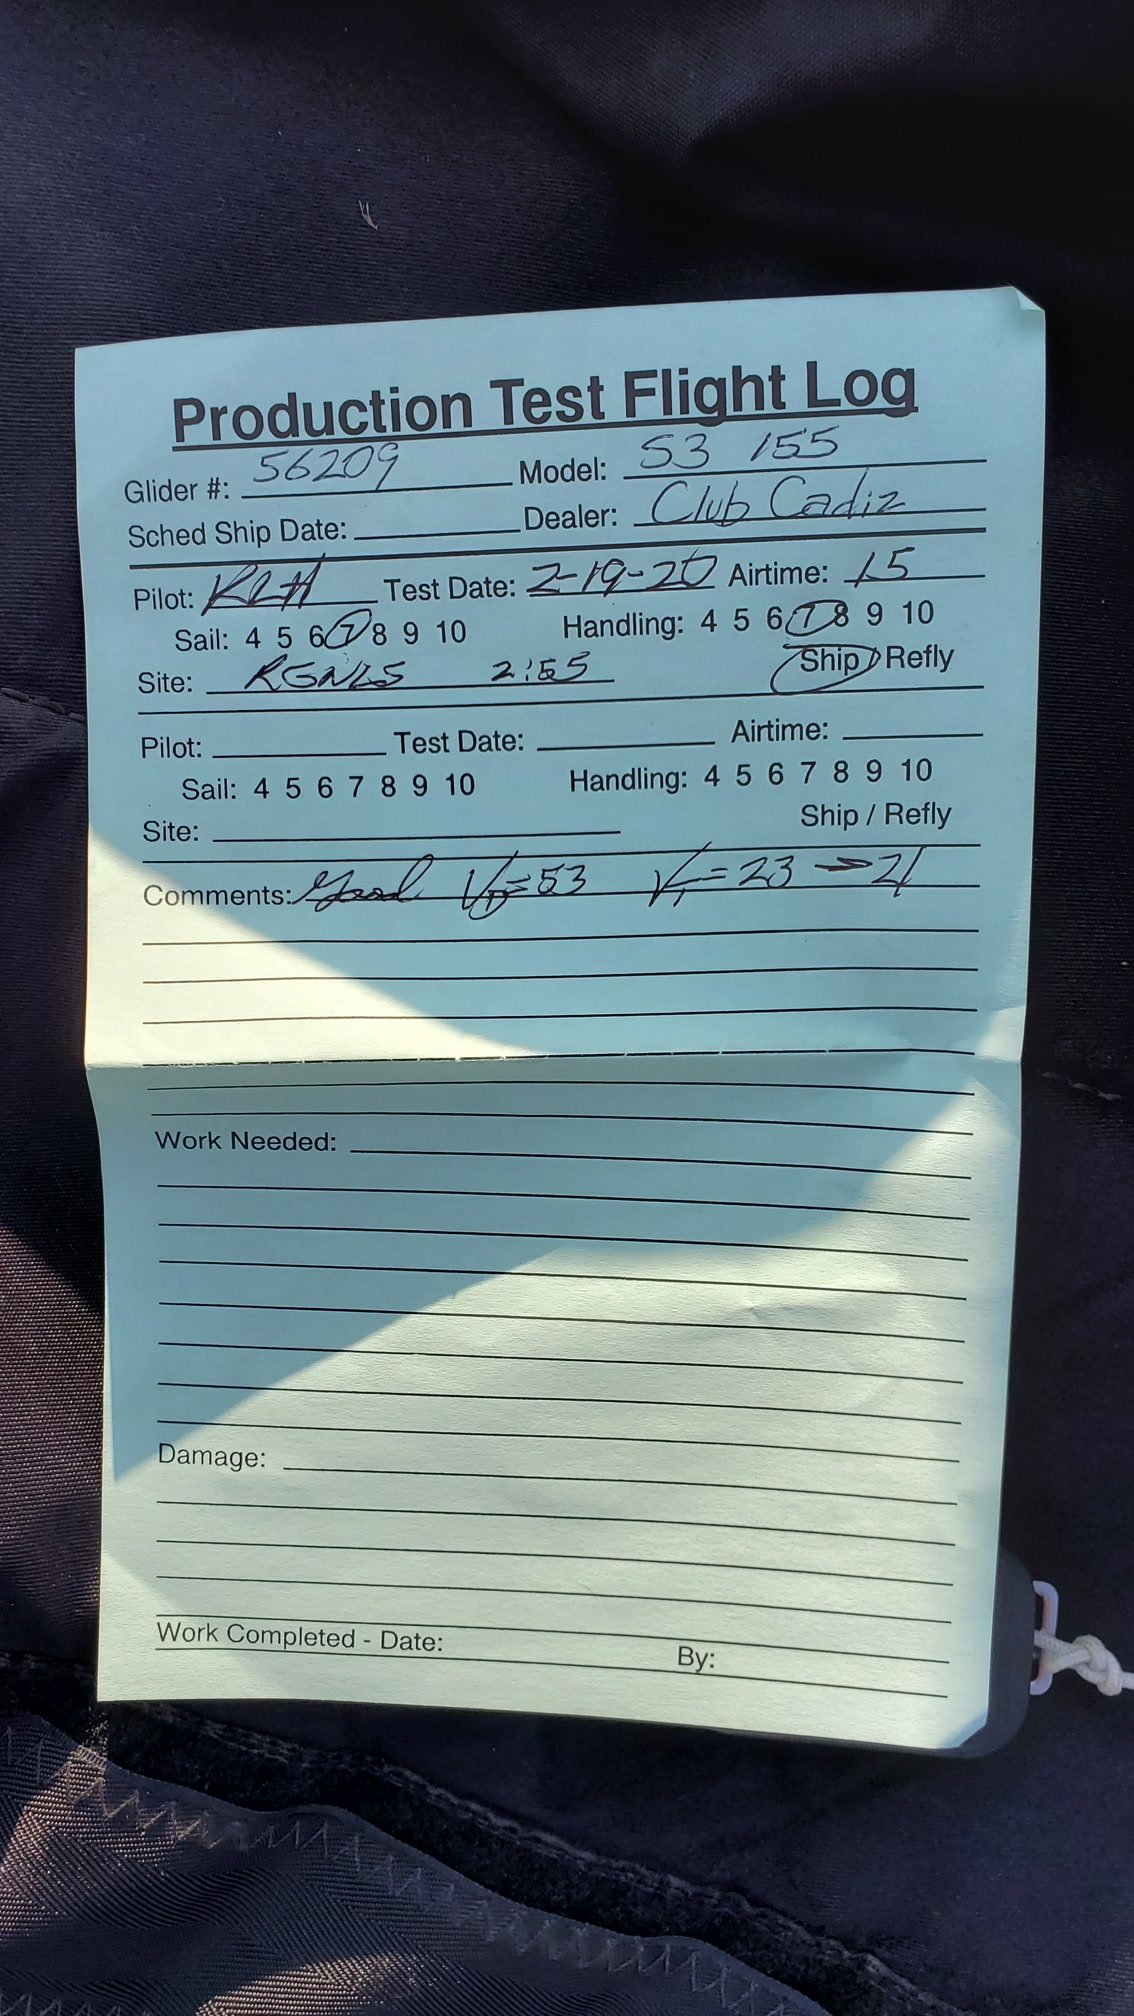 Production Test Flight Log
Glider #: 56209 Model: S3 155
Sched Ship Date: Dealer: Club Cadiz
Pilot: KLH Test Date: 2-19-20 Airtime: 15
Sail: 4 5 6 7 8 9 10 Handling: 4 5 6 7 8 9 10
Site: 2:55 Ship / Refly
Pilot: Test Date: Airtime:
Sail: 4 5 6 7 8 9 10 Handling: 4 5 6 7 8 9 10
Site: Ship / Refly
Comments: Good VD=53 VT=23 → 21
Work Needed:
Damage:
Work Completed - Date: By: